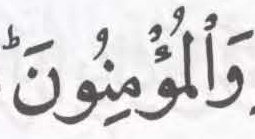 وَٱلْمُؤْمِنُونَ ۚ